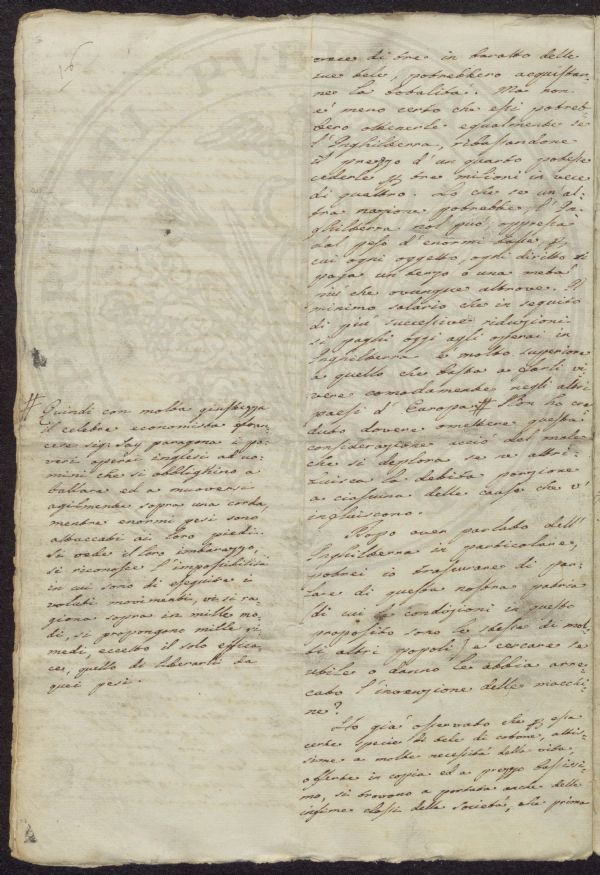 16
vece di tre in baratto delle
sue tele, potrebbero acquistar-
ne la totalità. Ma non
e' meno certo che essi potreb-
bero ottenerle egualmente se
l'Inghilterra, ribassandone
il prezzo d'un quarto potesse
cederle p tre milioni in vece
di quattro. Lo che se un al-
tra nazione potrebbe, l'In-
ghilterra nol può, oppressa
dal peso d'enormi tasse p
cui ogni oggetto, ogni diritto si
paga un terzo o una metà
più che ovunque altrove. Il
minimo salario che in seguito
di più successive riduzioni
si paghi oggi agli operai in
Inghilterra è molto superiore
a quello che basta a farli vi-
vere comodamente negli altri
paesi d'Europa. # Non ho cre-
duto dovere omettere questa
considerazione acciò del male
che si deplora se ne attri-
buisca la debita porzione
a ciascuna delle cause che v'
influiscono.
Dopo aver parlato dell'
Inghilterra in particolare,
potrei io trascurare di par-
lare di questa nostra patria
di cui le condizioni in questo
proposito sono le stesse di mol-
ti altri popoli, a cercare se
utile o danno le abbia arre-
cato l'invenzione delle macchi-
ne?
Ho già osservato che p essa
certe specie di tele di cotone, altis-
sime a molte necessità della vita,
offerte in copia ed a prezzo bassissi-
mo, si trovano a portata anche delle
infime classi della società, che prima
# Quindi con molta giustezza
il celebre economista fran-
cese sig. Say paragona i po-
veri operai inglesi ad uo-
mini che si obblighino a
ballare ed a muoversi
agilmente sopra una corda,
mentre enormi pesi sono
attaccati ai loro piedi.
Si vede il loro imbarazzo,
si riconosce l'impossibilità
in cui sono di eseguire i
voluti movimenti, vi si ra-
giona sopra in mille mo-
di, si propongono mille ri-
medi, eccetto il solo effica-
ce, quello di liberarli da
quei pesi.